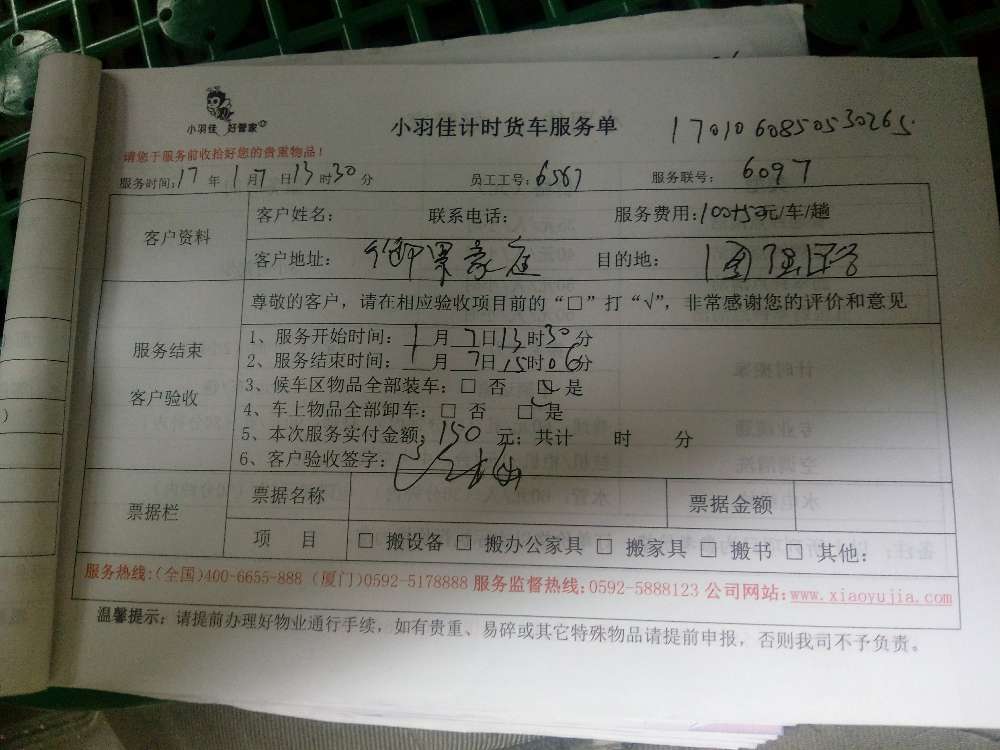 小羽佳 好管家
小羽佳计时货车服务单 1701060850530265
请您于服务前收拾好您的贵重物品！
服务时间:17年1月7日13时30分 员工工号:6567 服务联号:6097
客户资料
客户姓名: 联系电话: 服务费用:100+50元/车/趟
客户地址: 御景家庭 目的地:
尊敬的客户，请在相应验收项目前的“□”打“√”，非常感谢您的评价和意见
服务结束
客户验收
1、服务开始时间:1月7日13时30分
2、服务结束时间:1月7日15时06分
3、候车区物品全部装车:□ 否 ☑ 是
4、车上物品全部卸车:□ 否 ☑ 是
5、本次服务实付金额:150元；共计 时 分
6、客户验收签字:
票据栏
票据名称 票据金额
项 目 □ 搬设备 □ 搬办公家具 □ 搬家具 □ 搬书 □ 其他:
服务热线:(全国)400-6655-888 (厦门)0592-5178888 服务监督热线:0592-5888123 公司网站:www.xiaoyujia.com
温馨提示: 请提前办理好物业通行手续，如有贵重、易碎或其它特殊物品请提前申报，否则我司不予负责。